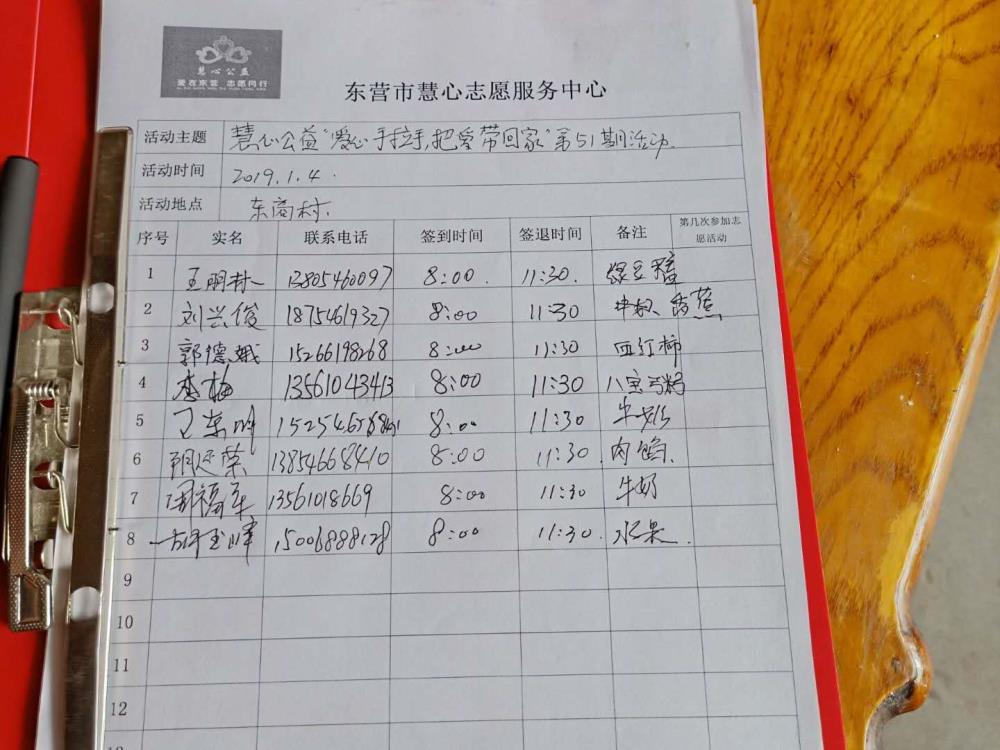 慧心公益
爱在东营 志愿同行
东营市慧心志愿服务中心
活动主题 慧心公益"爱心手拉手,把爱带回家"第51期活动
活动时间 2019.1.4.
活动地点 东商村.
序号 实名 联系电话 签到时间 签退时间 备注 第几次参加志愿活动
1 王明村 13805460097 8:00. 11:30.
2 刘兴俊 18754619327 8:00 11:30 香蕉
3 郭德娥 15266198268 8:00 11:30 西红柿
4 李梅 13561043413 8:00 11:30 八宝粥
5 8:00 11:30 牛奶
6 13854668410 8:00 11:30. 肉馅.
7 周福军 13561018669 8:00 11:30 牛奶
8 15006888128 8:00 11:30. 水果.
9
10
11
12